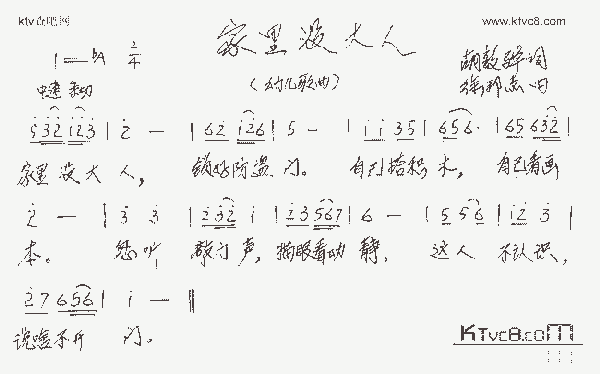 ktv酷吧网
www.ktvc8.com
家里没大人
1=bA 2/4
(幼儿歌曲)
胡敦骅词
徐邦杰曲
中速
532 123 | 2 — | 62 126 | 5 — | 11 35 | 656· | 65 632 |
家里没大人, 锁好防盗门。自己搭积木, 自己看画
2 — | 3 3 | 232 1 | 23 567 | 6 — | 5 56 | 12 3 |
本。忽听敲门声, 猫眼看动静, 这人不认识,
27 656 | 1 — ‖
说啥不开门。
KTvc8.com